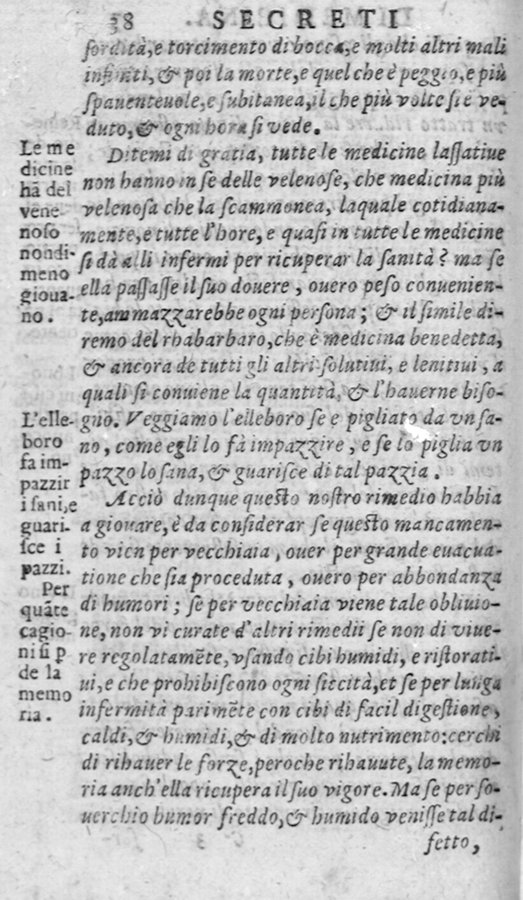 38 SECRETI
sordità,e torcimento di bocca,e molti altri mali
infiniti,& poi la morte,e quel che è peggio,e più
spauenteuole,e subitanea,il che più volte si è ve-
duto,& ogni hora si vede.
Ditemi di gratia, tutte le medicine lassatiue
non hanno in se delle velenose, che medicina più
velenosa che la scammonea, laquale cotidiana-
mente,e tutte l'hore, e quasi in tutte le medicine
si dà alli infermi per ricuperar la sanità? ma se
ella passasse il suo douere, ouero peso conuenien-
te,ammazzarebbe ogni persona; & il simile di-
remo del rhabarbaro,che è medicina benedetta,
& ancora de tutti gli altri solutiui, e lenitiui, a
quali si conuiene la quantità, & l'hauerne biso-
gno. Veggiamo l'elleboro se e pigliato da vn sa-
no, come egli lo fà impazzire, e se lo piglia vn
pazzo lo sana, & guarisce di tal pazzia.
Acciò dunque questo nostro rimedio habbia
a giouare, è da considerar se questo mancamen-
to vien per vecchiaia, ouer per grande euacua-
tione che sia proceduta, ouero per abbondanza
di humori; se per vecchiaia viene tale obliuio-
ne, non vi curate d'altri rimedii se non di viue-
re regolatamẽte, vsando cibi humidi, e ristorati-
ui,e che prohibiscono ogni siccità,et se per lunga
infermità parimẽte con cibi di facil digestione,
caldi,& humidi,& di molto nutrimento:cerchi
di rihauer le forze,peroche rihauute, la memo-
ria anch'ella ricupera il suo vigore. Ma se per so-
uerchio humor freddo,& humido venisse tal di-
fetto,
Le me
dicine
hã del
vene-
noso
nondi-
meno
gioua-
no.
L'elle-
boro
fa im-
pazzir
i sani,e
guari-
sce i
pazzi.
Per
quãte
cagio-
ni si p
de la
memo
ria.